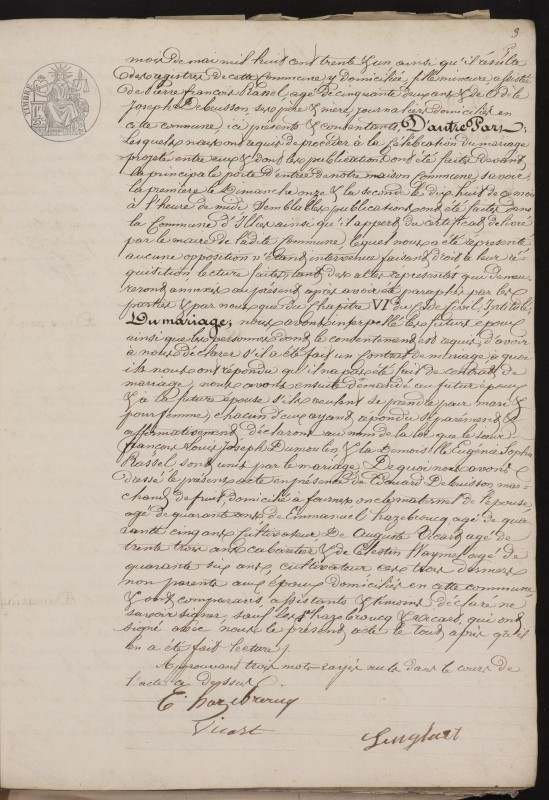 3
mois de mai mil huit cent trente & un ainsi qu'il résulte
des registres de cette commune, y domiciliée, fille mineure assistée
de Pierre françois Rassel, âgé de cinquante deux ans & de Odile
Joseph Debuisson, ses père & mère, journaliers domiciliés en
cette commune, ici présents & consentants, D'autre Part;
Lesquels nous ont requis de procéder à la célébration du mariage
projeté entre eux & dont les publications ont été faites devant
la principale porte d'entrée de notre maison commune, savoir:
la première le Dimanche onze & la seconde le dix huit de mois
à l'heure de midi. Semblables publications ont été faites dans
la Commune d'Illies ainsi qu'il appert du certificat délivré
par le maire de ladite commune, lequel nous a été représenté
aucune opposition n'étant intervenue faisant droit à leur ré-
quisition lecture faite, tant des actes représentés qui demeu-
reront annexés au présent après avoir été paraphés par les
parties & par nous que du chapitre VI du Code Civil, Intitulé:
Du mariage; nous avons interpellé les futurs époux
ainsi que les personnes dont le consentement est requis, d'avoir
à nous déclarer s'il a été fait un contrat de mariage, à quoi
ils nous ont répondu qu'il n'a pas été fait de contrat de
mariage, nous avons ensuite demandé au futur époux
& à la future épouse s'ils veulent se prendre pour mari &
pour femme, chacun d'eux ayant répondu séparément &
affirmativement, déclarons au nom de la loi que le sieur
françois Louis Joseph Dumoulin & la Demoiselle Eugénie Sophie
Rassel sont unis par le mariage. De quoi nous avons
dressé le présent acte en présence de Edouard Debuisson, mar-
chand de fruit, domicilié à fournes, oncle maternel de l'épouse,
âgé de quarante ans, de Emmanuel hazebroucq, âgé de qua-
rante cinq ans, cultivateur, De Auguste Vicart, âgé de
trente trois ans, cabaretier, & de Célestin Waymel, âgé de
quarante six ans, cultivateur, ces trois derniers
non parents aux époux domiciliés en cette commune
& ont comparants, assistants & témoins déclaré ne
savoir signer, sauf les hazebroucq & Vicart, qui ont
signé avec nous le présent acte le tout après qu'il
en a été fait lecture.
Approuvant trois mots rayés nuls dans le cours de
l'acte ci dessus.
E. hazebroucq
Vicart